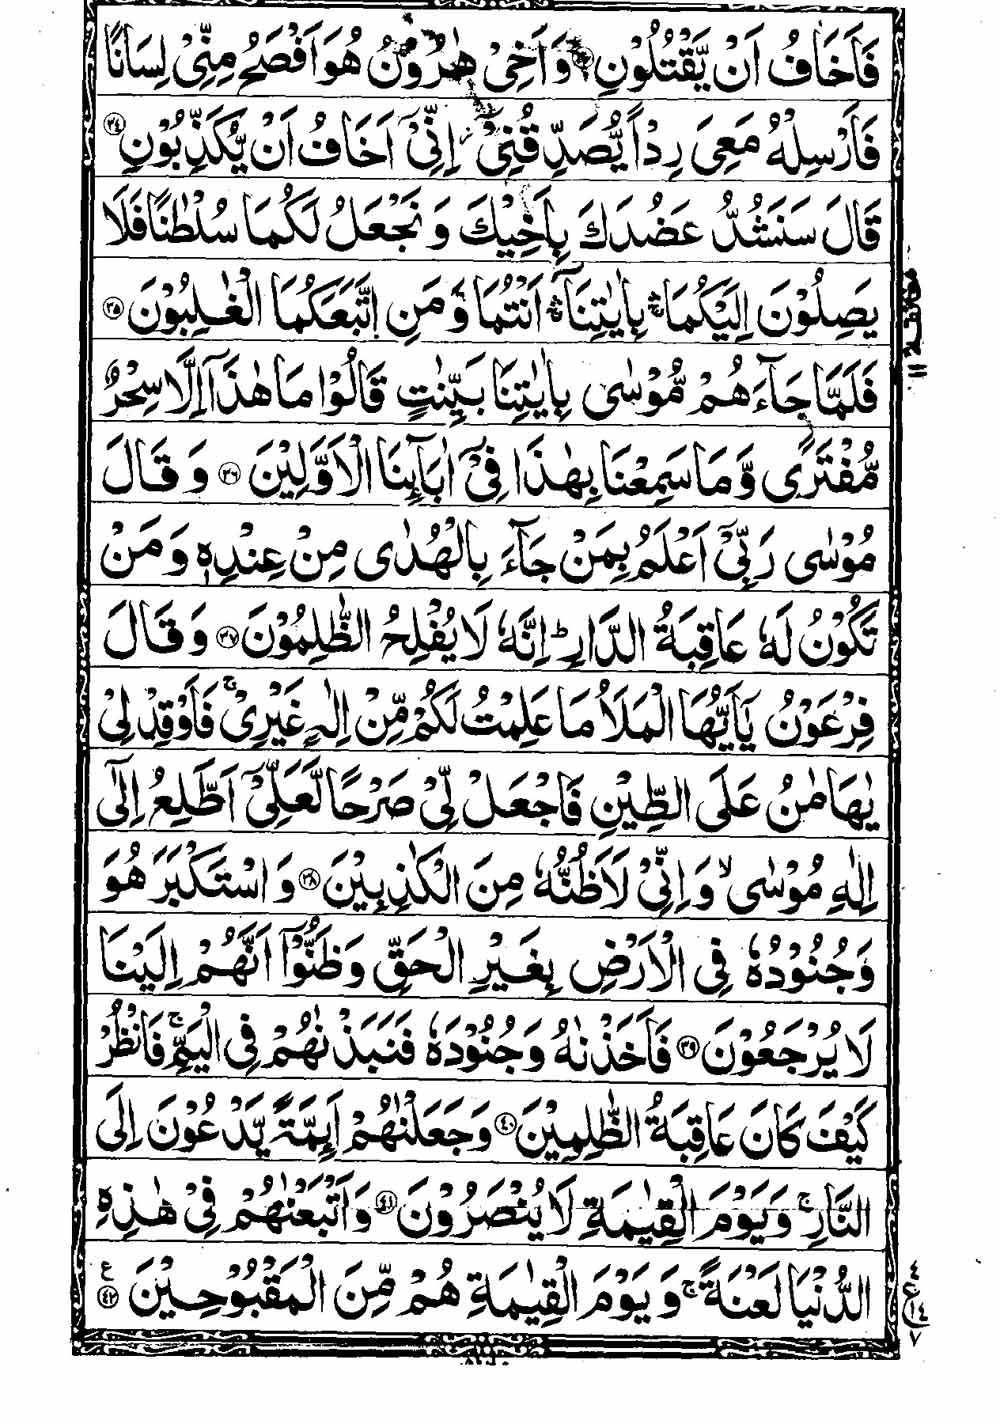 فَاَخَافُ اَنْ يَّقْتُلُوْنِ ۝۳۳ وَاَخِىْ هٰرُوْنُ هُوَ اَفْصَحُ مِنِّىْ لِسَانًا
فَاَرْسِلْهُ مَعِىَ رِدْاً يُّصَدِّقُنِىْٓ ز اِنِّىْٓ اَخَافُ اَنْ يُّكَذِّبُوْنِ ۝۳۴
قَالَ سَنَشُدُّ عَضُدَكَ بِاَخِيْكَ وَنَجْعَلُ لَكُمَا سُلْطٰنًا فَلَا
يَصِلُوْنَ اِلَيْكُمَا ۛ بِاٰيٰتِنَآ ۛ اَنْتُمَا وَمَنِ اتَّبَعَكُمَا الْغٰلِبُوْنَ ۝۳۵
فَلَمَّا جَآءَهُمْ مُّوْسٰى بِاٰيٰتِنَا بَيِّنٰتٍ قَالُوْا مَا هٰذَآ اِلَّا سِحْرٌ
مُّفْتَرًى وَّمَا سَمِعْنَا بِهٰذَا فِىْٓ اٰبَآئِنَا الْاَوَّلِيْنَ ۝۳۶ وَقَالَ
مُوْسٰى رَبِّىْٓ اَعْلَمُ بِمَنْ جَآءَ بِالْهُدٰى مِنْ عِنْدِهٖ وَمَنْ
تَكُوْنُ لَهٗ عَاقِبَةُ الدَّارِ ؕ اِنَّهٗ لَا يُفْلِحُ الظّٰلِمُوْنَ ۝۳۷ وَقَالَ
فِرْعَوْنُ يٰٓاَيُّهَا الْمَلَاُ مَا عَلِمْتُ لَكُمْ مِّنْ اِلٰهٍ غَيْرِىْ ۚ فَاَوْقِدْ لِىْ
يٰهَامٰنُ عَلَى الطِّيْنِ فَاجْعَلْ لِّىْ صَرْحًا لَّعَلِّىْٓ اَطَّلِعُ اِلٰٓى
اِلٰهِ مُوْسٰى ۙ وَاِنِّىْ لَاَظُنُّهٗ مِنَ الْكٰذِبِيْنَ ۝۳۸ وَاسْتَكْبَرَ هُوَ
وَجُنُوْدُهٗ فِى الْاَرْضِ بِغَيْرِ الْحَقِّ وَظَنُّوْٓا اَنَّهُمْ اِلَيْنَا
لَا يُرْجَعُوْنَ ۝۳۹ فَاَخَذْنٰهُ وَجُنُوْدَهٗ فَنَبَذْنٰهُمْ فِى الْيَمِّ ۚ فَانْظُرْ
كَيْفَ كَانَ عَاقِبَةُ الظّٰلِمِيْنَ ۝۴۰ وَجَعَلْنٰهُمْ اَئِمَّةً يَّدْعُوْنَ اِلَى
النَّارِ ۚ وَيَوْمَ الْقِيٰمَةِ لَا يُنْصَرُوْنَ ۝۴۱ وَاَتْبَعْنٰهُمْ فِىْ هٰذِهِ
الدُّنْيَا لَعْنَةً ۚ وَيَوْمَ الْقِيٰمَةِ هُمْ مِّنَ الْمَقْبُوْحِيْنَ ۝۴۲ ع